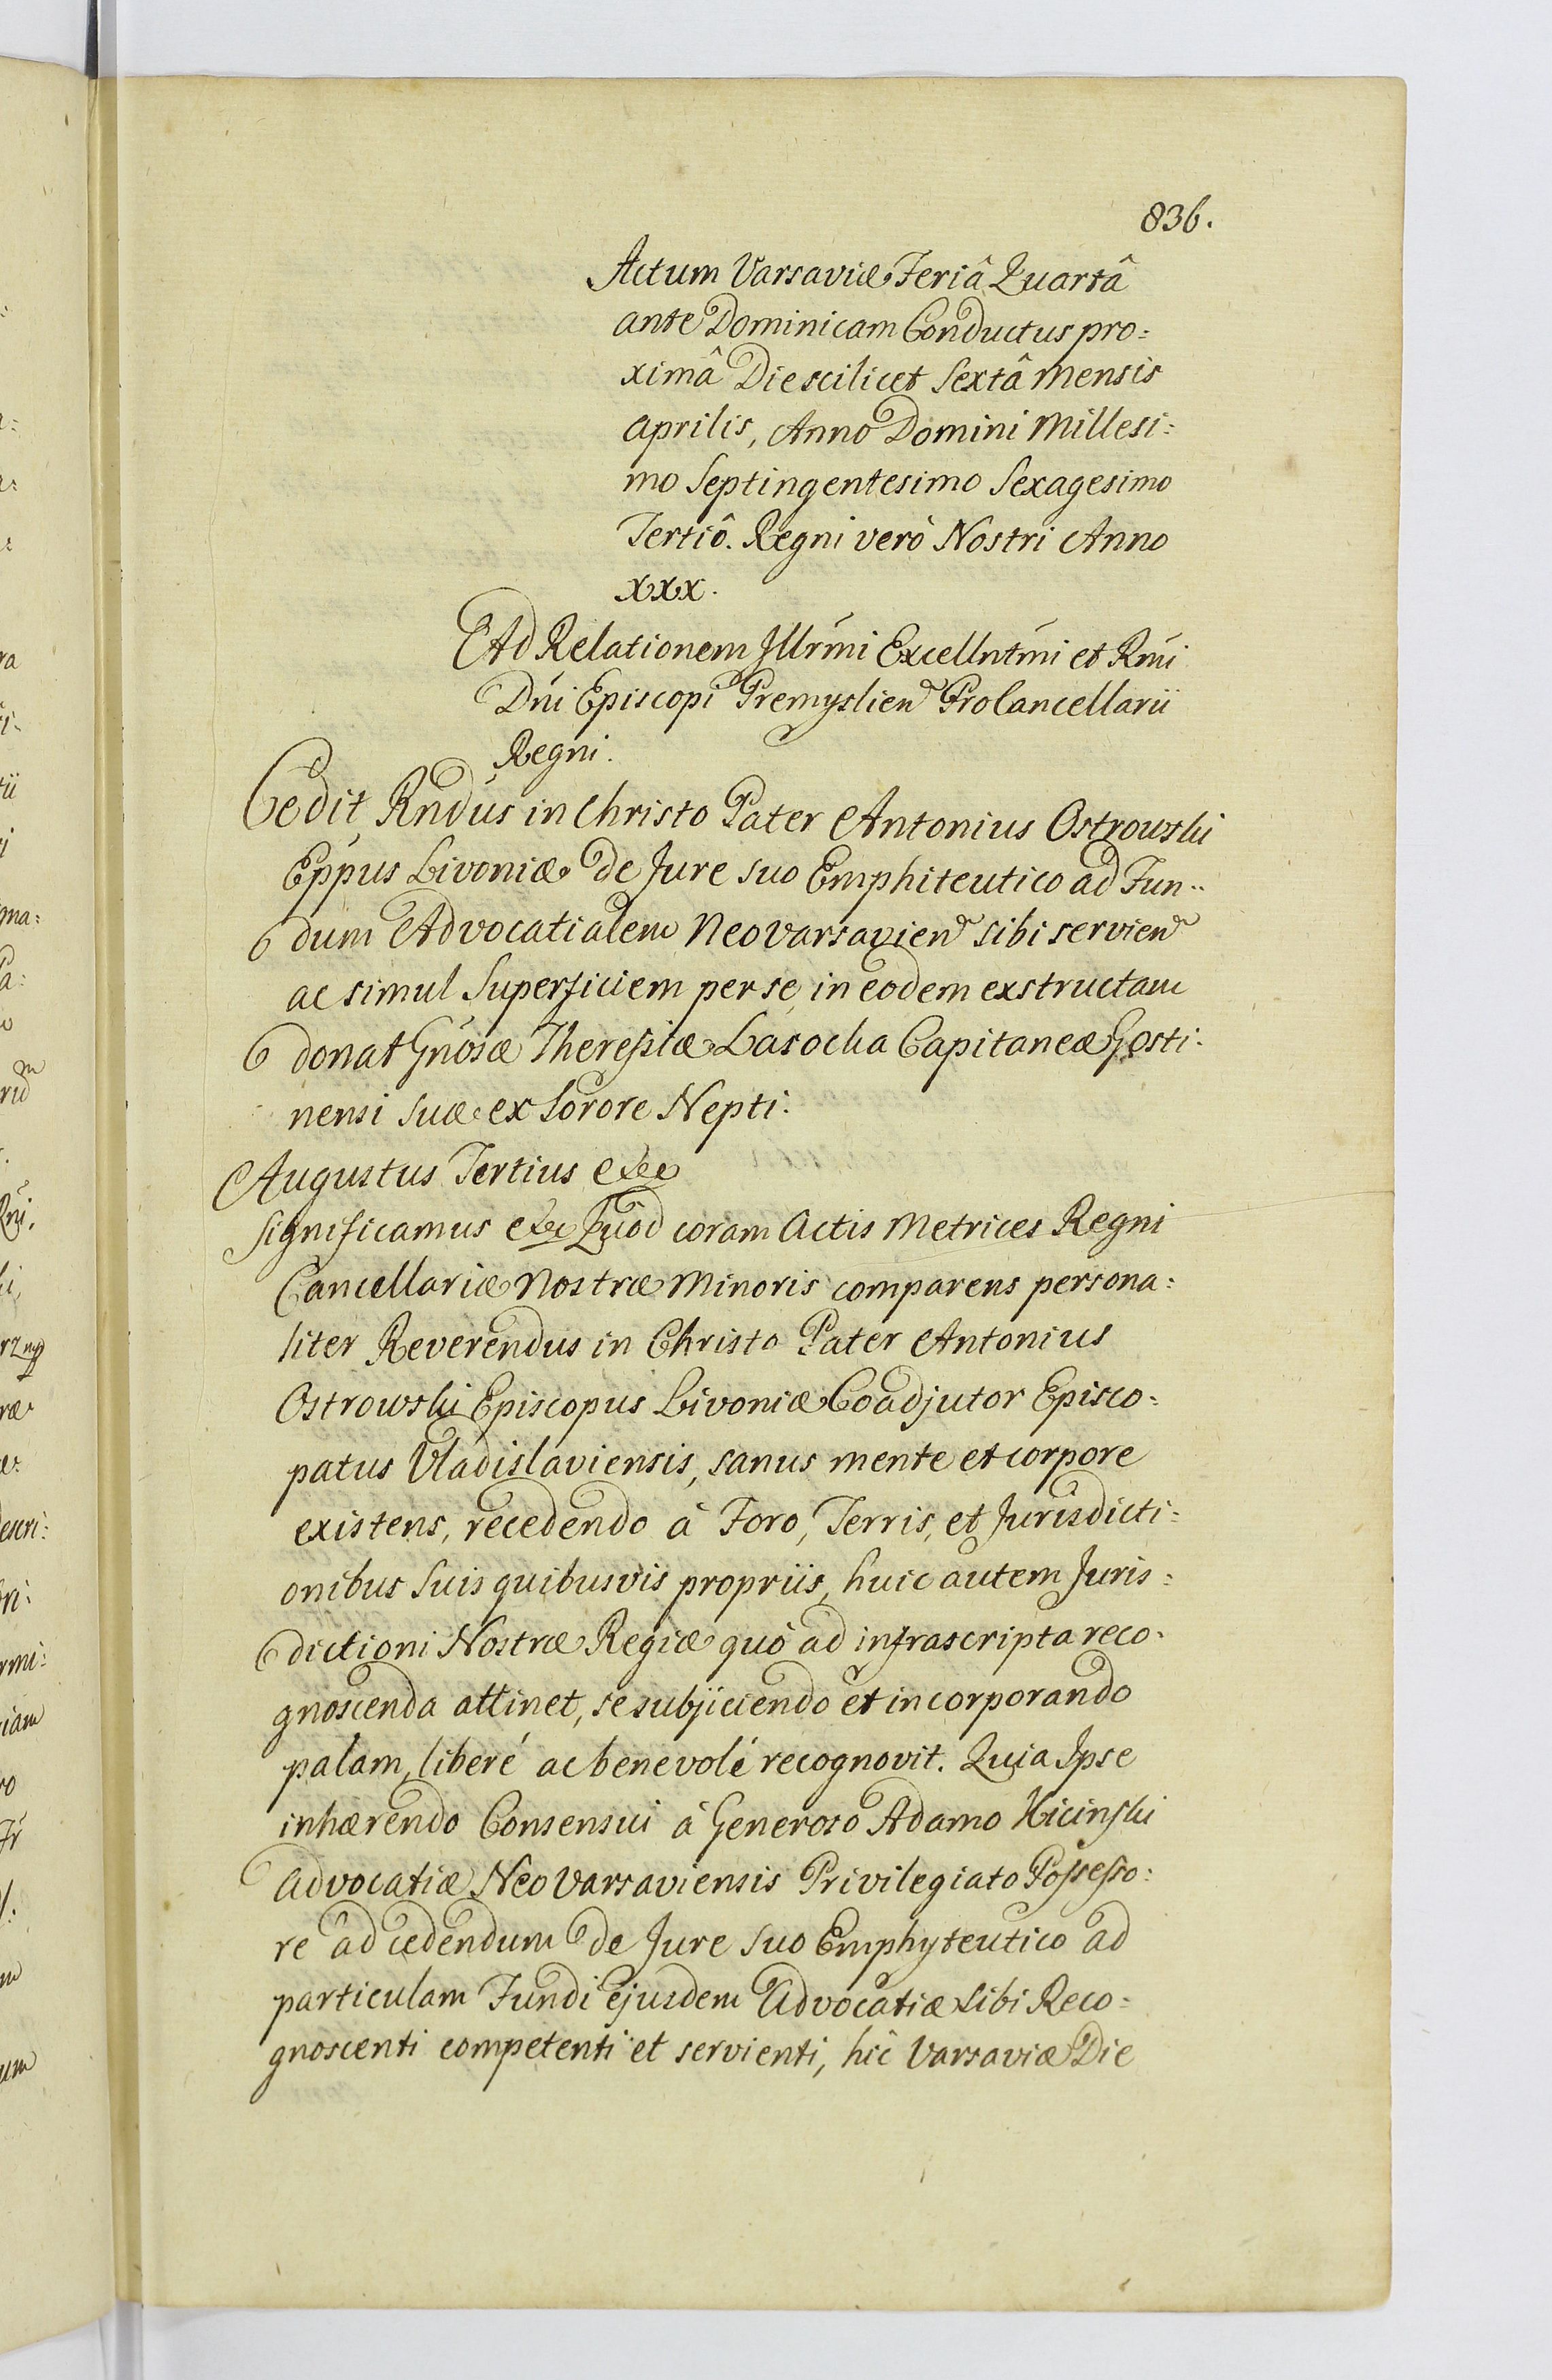 836.
Actum Varsaviæ Feriâ Quartâ
ante Dominicam Conductus pro=
ximâ Die scilicet Sextâ Mensis
Aprilis, Anno Domini Millesi=
mo Septingentesimo Sexagesimo
Tertiô. Regni verò Nostri Anno
XXX.
Ad Relationem Illrmi Excellntmi et Rmi
Dni Episcopi Premyslien Procancellarii
Regni.
Cedit Rndus in Christo Pater Antonius Ostrowski
Eppus Livoniæ de Jure suo Emphiteutico ad Fun=
dum Advocatialem Neovarsavien sibi servien
ac simul Superficiem per se in eodem exstructam
donat Gnosæ Theresiæ Lasocka Capitaneæ Gosti=
nensi suæ ex Sorore Nepti.
Augustus Tertius etc
Significamus etc Quod coram Actis Metrices Regni
Cancellariæ Nostræ Minoris comparens persona=
liter Reverendus in Christo Pater Antonius
Ostrowski Episcopus Livoniæ Coadjutor Episco=
patus Vladislaviensis, sanus mente et corpore
existens, recedendo à Foro, Terris, et Jurisdicti=
onibus suis quibusvis propriis, huic autem Juris=
dictioni Nostræ Regiæ quò ad infrascripta reco=
gnoscenda attinet, se subjiciendo et incorporando
palam, liberé ac benevolé recognovit. Quia Ipse
inhærendo Consensui à Generoso Adamo Kicinski
Advocatiæ Neo Varsaviensis Privilegiato Possesso=
re ad cedendum de Jure suo Emphyteutico ad
particulam Fundi ejusdem Advocatiæ sibi Reco=
gnoscenti competenti et servienti, hîc Varsaviæ Die